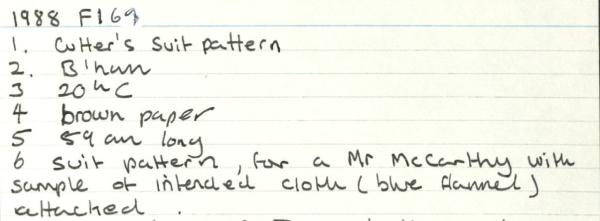 1988 F169
1. Cutter's suit pattern
2. B'ham
3 20th C
4 brown paper
5 59 cm long
6 suit pattern, for a Mr McCarthy with
sample of intended cloth (blue flannel)
attached.